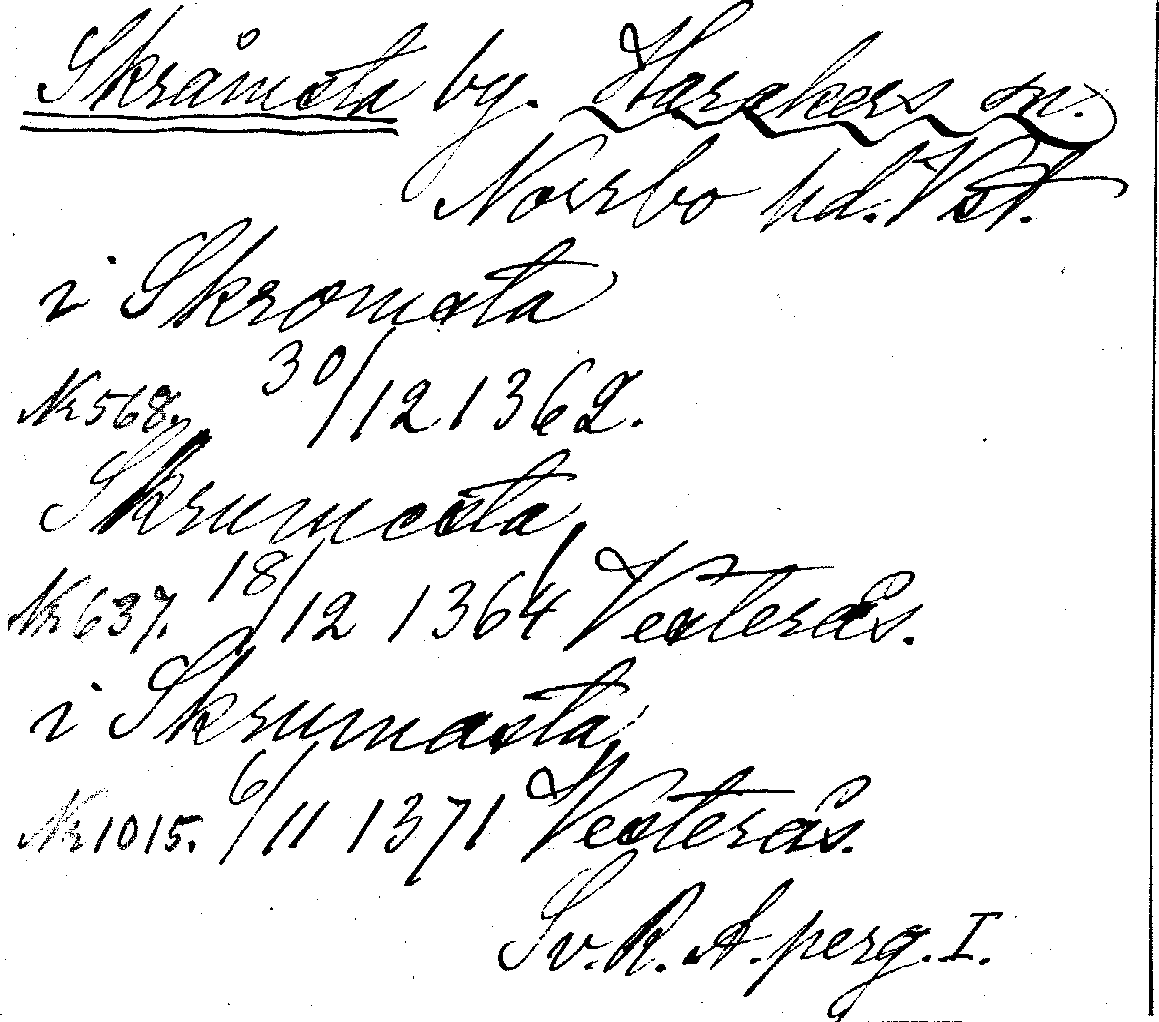 Skråmsta by. Harakers sn.
Norrbo hd. Vstl.
i Skromsta
Nr 568. 30/12 1362.
Skrumesta,
Nr 637. 18/12 1364 Vesterås.
i Skrumasta,
Nr 1015. 6/11 1371 Vesterås.
Sv. R. A. perg. I.